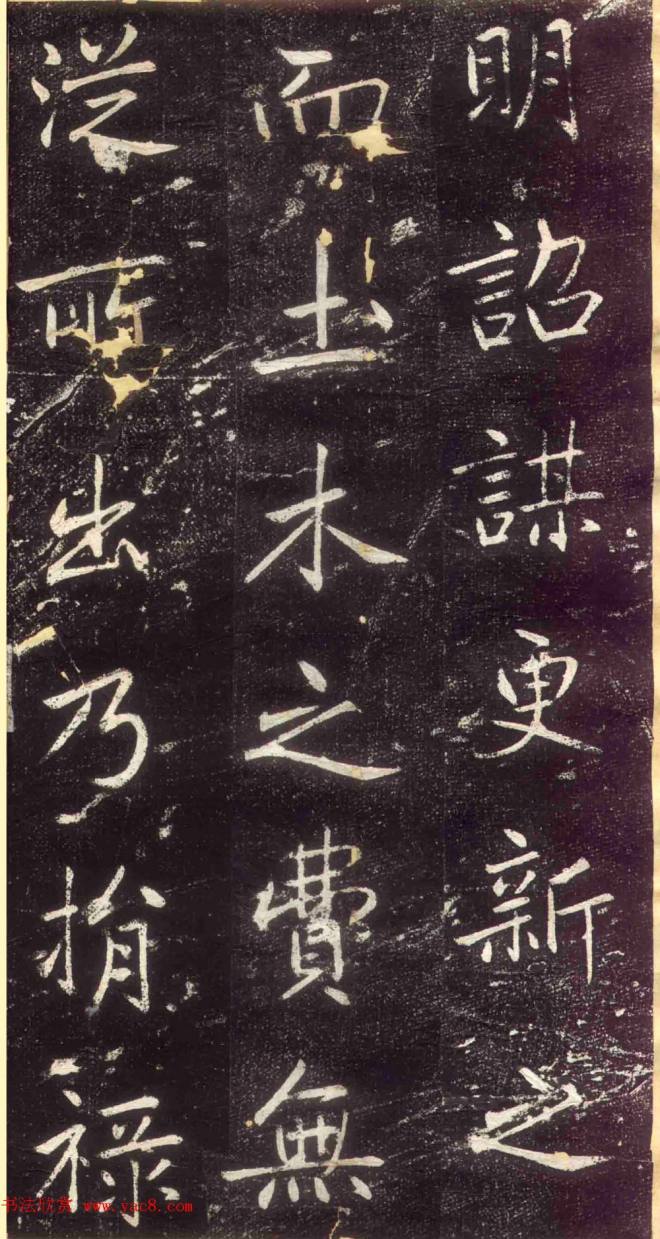 明詔謀更新之
而土木之費無
從所出乃捐祿
书法欣赏 www.yac8.com